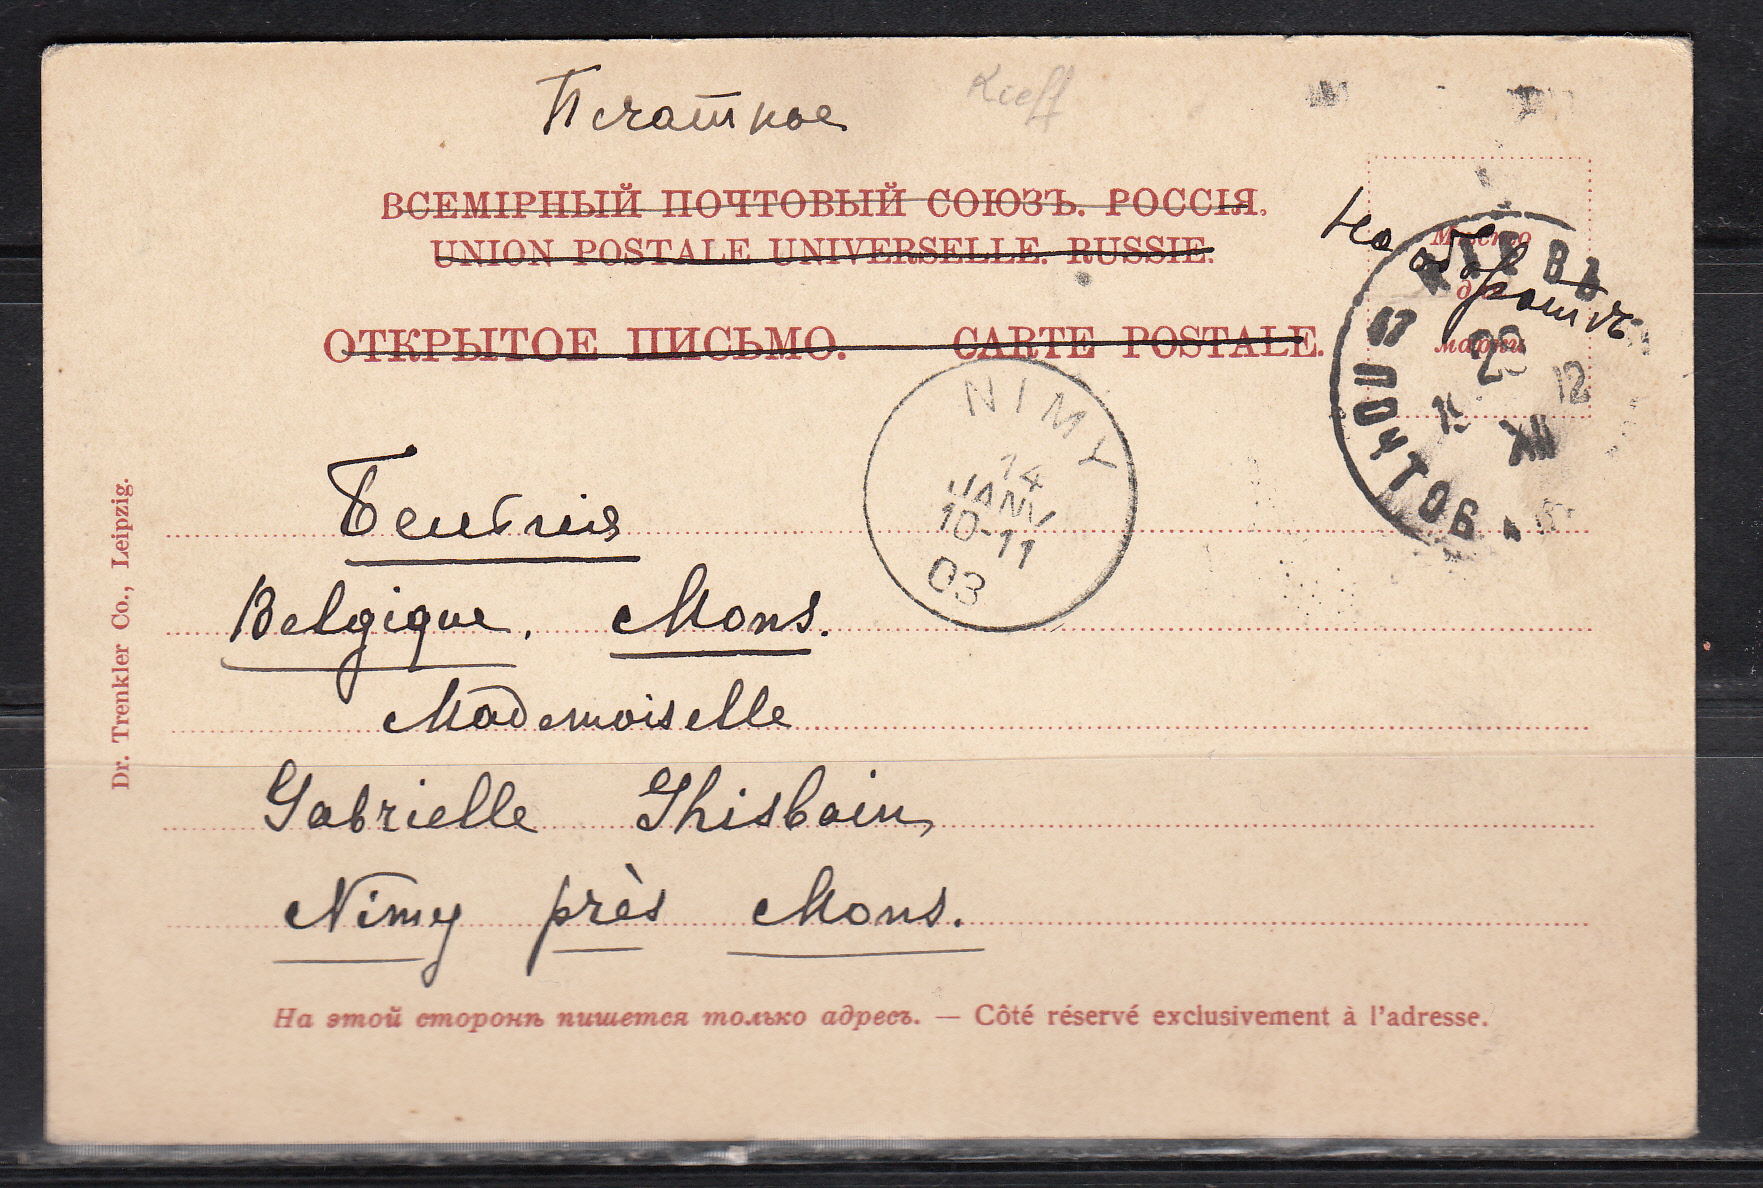 Печатное
Kieff
ВСЕМІРНЫЙ ПОЧТОВЫЙ СОЮЗЪ. РОССІЯ.
UNION POSTALE UNIVERSELLE. RUSSIE.
ОТКРЫТОЕ ПИСЬМО. CARTE POSTALE.
Мѣсто
для
марки
На оборотѣ
КІЕВЪ
ПОЧТОВ
12
XII
NIMY
14
JANV
10-11
03
Бельгия
Belgique, Mons.
Mademoiselle
Gabrielle Ghisbain,
Nimy près Mons.
Dr. Trenkler Co., Leipzig.
На этой сторонѣ пишется только адресъ. — Côté réservé exclusivement à l'adresse.